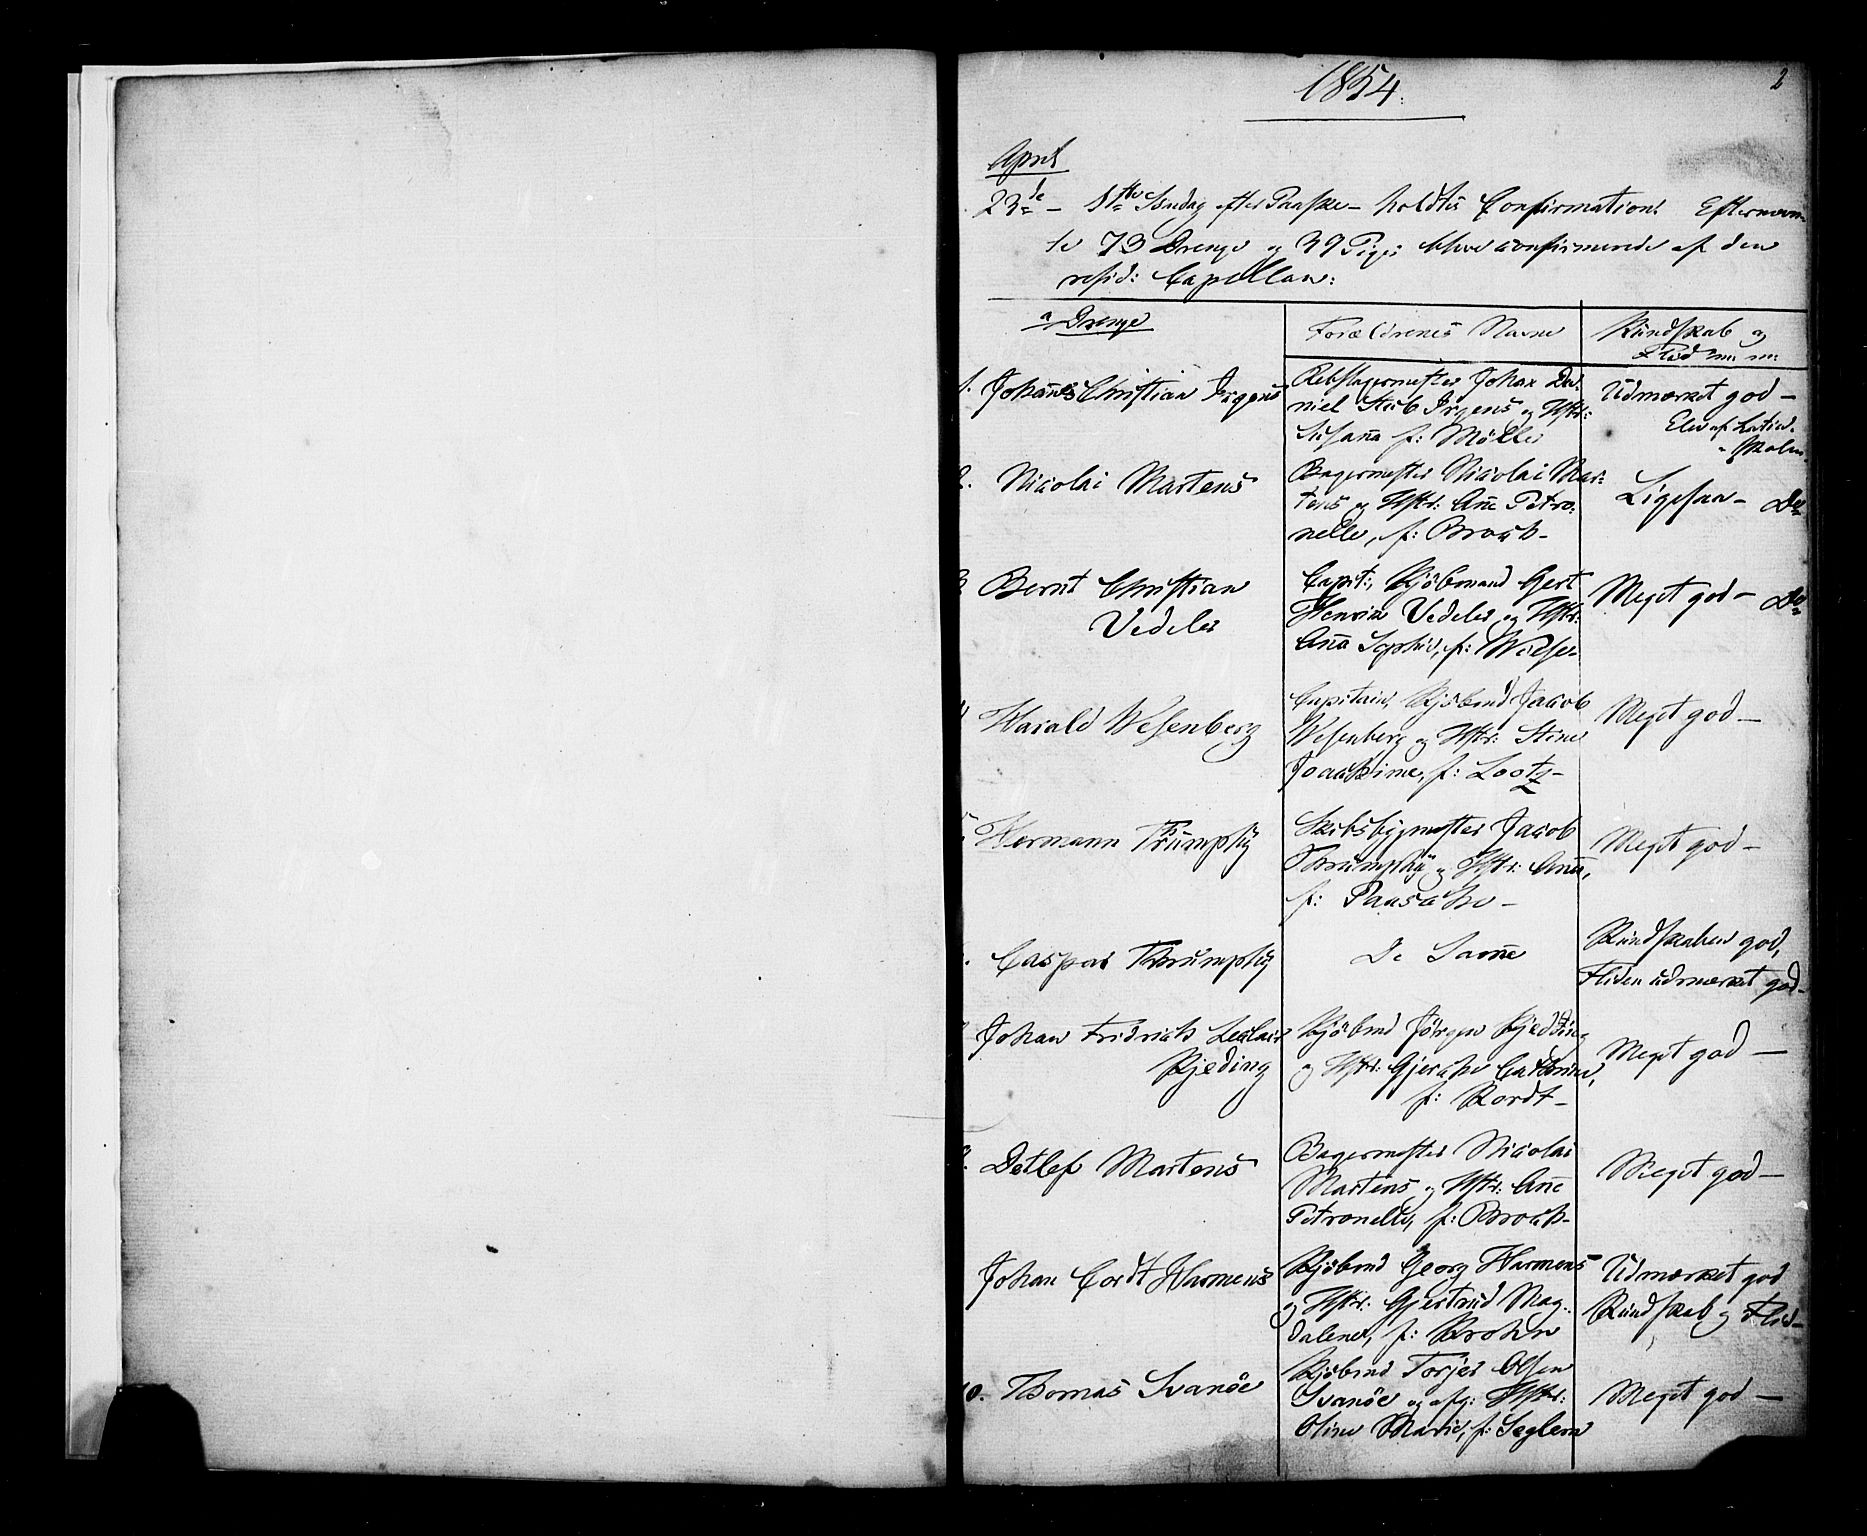 1854.
2
April
23de – 1ste Søndag efter Paaske – holdtes Confirmation. Efternævn-
te 73 Drenge og 39 Piger bleve confirmerede af den
resid: Capellan:
a Drenge
Forældrenes Navne
Kundskab og
Flid m: m:
1. Johannes Christian Irgens
Rebslagermester Johan Da-
niel Stub Irgens og Hstr:
Susanna f: Möller
Udmærket god –
Elev af Latin-
skolen
2. Nicolai Martens
Bagermester Nicolai Mar-
tens og Hstr: Ane Petro-
nelle, f: Broch –
Ligesaa – Do
3. Bernt Christian
Vedeler
Capit:, Kjöbmand Gert
Henrik Vedeler og Hstr:
Anna Sophie, f:
Meget god – Do
Harald Wesenberg
Capitain, Kjöbmd Jacob
Wesenberg og Hstr: Stine
Joachime, f: Lootz –
Meget god –
5. Hermann Thrumphy
Skibsbygmester Jacob
Thrumphy og Hstr: Anna,
f: Pansche –
Meget god –
Caspar Thrumphy
De Samme
Kundskaben god,
Fliden udmærket god –
Johan Fridrich Leclair
Kjeding
Kjöbmd Jörgen Kjeding
og Hstr: Gjesche Cathrine,
f: Kordt –
Meget god –
Detlef Martens
Bagermester Nicolai
Martens og Hstr: Ane
Petronelle, f: Broch –
Meget god –
Johan Cordt Harmens
Kjöbmd Georg Harmens
og Hstr: Gjertrud Mag-
dalene, f: Krohn
Udmærket god
Kundskab og Flid –
10. Thomas Svanöe
Kjöbmd Torjer Olsen
Svanöe og afg: Hstr:
Oline Marie, f: Seglem
Meget god –